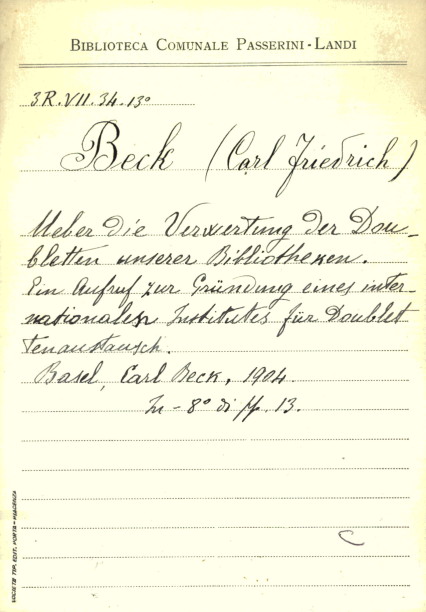 BIBLIOTECA COMUNALE PASSERINI-LANDI
3R.VII.34.13°
Beck (Carl Friedrich)
Ueber die Verwertung der Dou-
bletten unserer Bibliotheken.
Ein Aufruf zur Gründung eines inter-
nationalen Institutes für Doublet
tenaustausch.
Basel, Carl Beck, 1904
In-8° di pp. 13.
C
SOCIETÀ TIP. EDIT. PORTA-PIACENZA